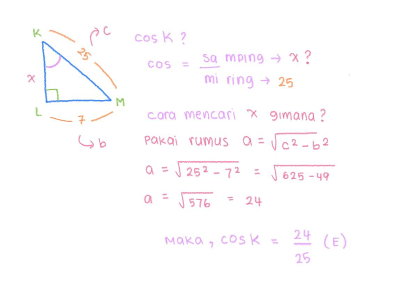 K
C
25
x
L
M
7
b
cos K?
cos = samping → x?
miring → 25
cara mencari x gimana?
Pakai rumus a = √c² - b²
a = √25² - 7² = √625 - 49
a = √576 = 24
Maka, cos K = 24/25 (E)